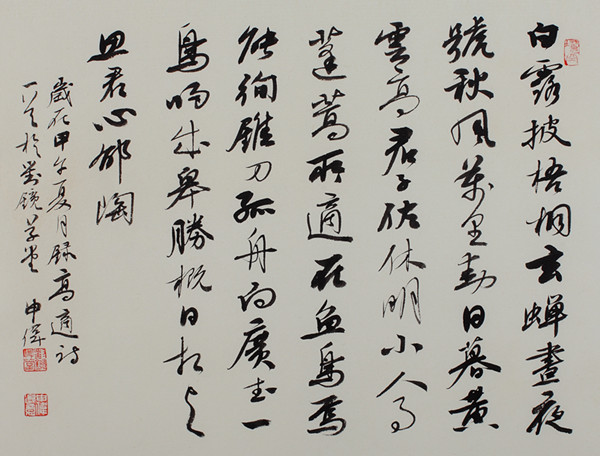 白露披梧桐玄蟬晝夜
號秋風萬里動日暮黃
雲高君子佐休明小人事
蓬蒿所適在魚鳥焉
能徇錐刀孤舟向廣武一
鳥歸成皋勝概日相與
思君心郁陶
歲在甲午夏月錄高適詩
一首於對鏡草堂 申偉